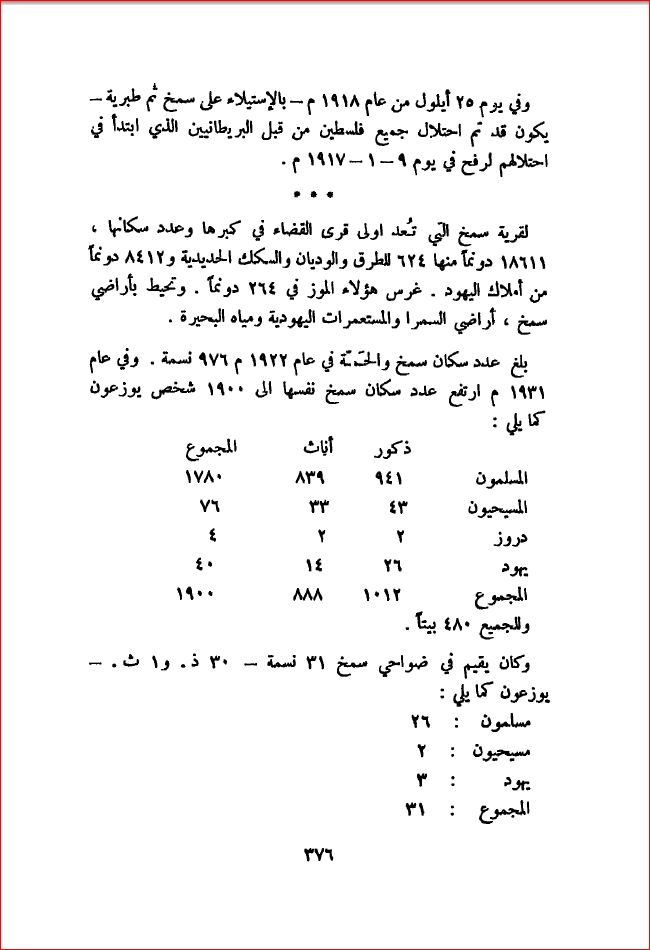 وفي يوم ٢٥ أيلول من عام ١٩١٨ م – بالإستيلاء على سمخ ثم طبرية –
يكون قد تم احتلال جميع فلسطين من قبل البريطانيين الذي ابتدأ في
احتلالهم لرفح في يوم ٩ – ١ – ١٩١٧ م .
* * *
لقرية سمخ التي تُعد اولى قرى القضاء في كبرها وعدد سكانها ،
١٨٦١١ دونماً منها ٦٢٤ للطرق والوديان والسكك الحديدية و٨٤١٢ دونماً
من أملاك اليهود . غرس هؤلاء الموز في ٢٦٤ دونماً . وتحيط بأراضي
سمخ ، أراضي السمرا والمستعمرات اليهودية ومياه البحيرة .
بلغ عدد سكان سمخ والحَمّة في عام ١٩٢٢ م ٩٧٦ نسمة . وفي عام
١٩٣١ م ارتفع عدد سكان سمخ نفسها الى ١٩٠٠ شخص يوزعون
كما يلي :
ذكور أناث المجموع
المسلمون ٩٤١ ٨٣٩ ١٧٨٠
المسيحيون ٤٣ ٣٣ ٧٦
دروز ٢ ٢ ٤
يهود ٢٦ ١٤ ٤٠
المجموع ١٠١٢ ٨٨٨ ١٩٠٠
وللجميع ٤٨٠ بيتاً .
وكان يقيم في ضواحي سمخ ٣١ نسمة – ٣٠ ذ. و١ ث. –
يوزعون كما يلي :
مسلمون : ٢٦
مسيحيون : ٢
يهود : ٣
المجموع : ٣١
٣٧٦